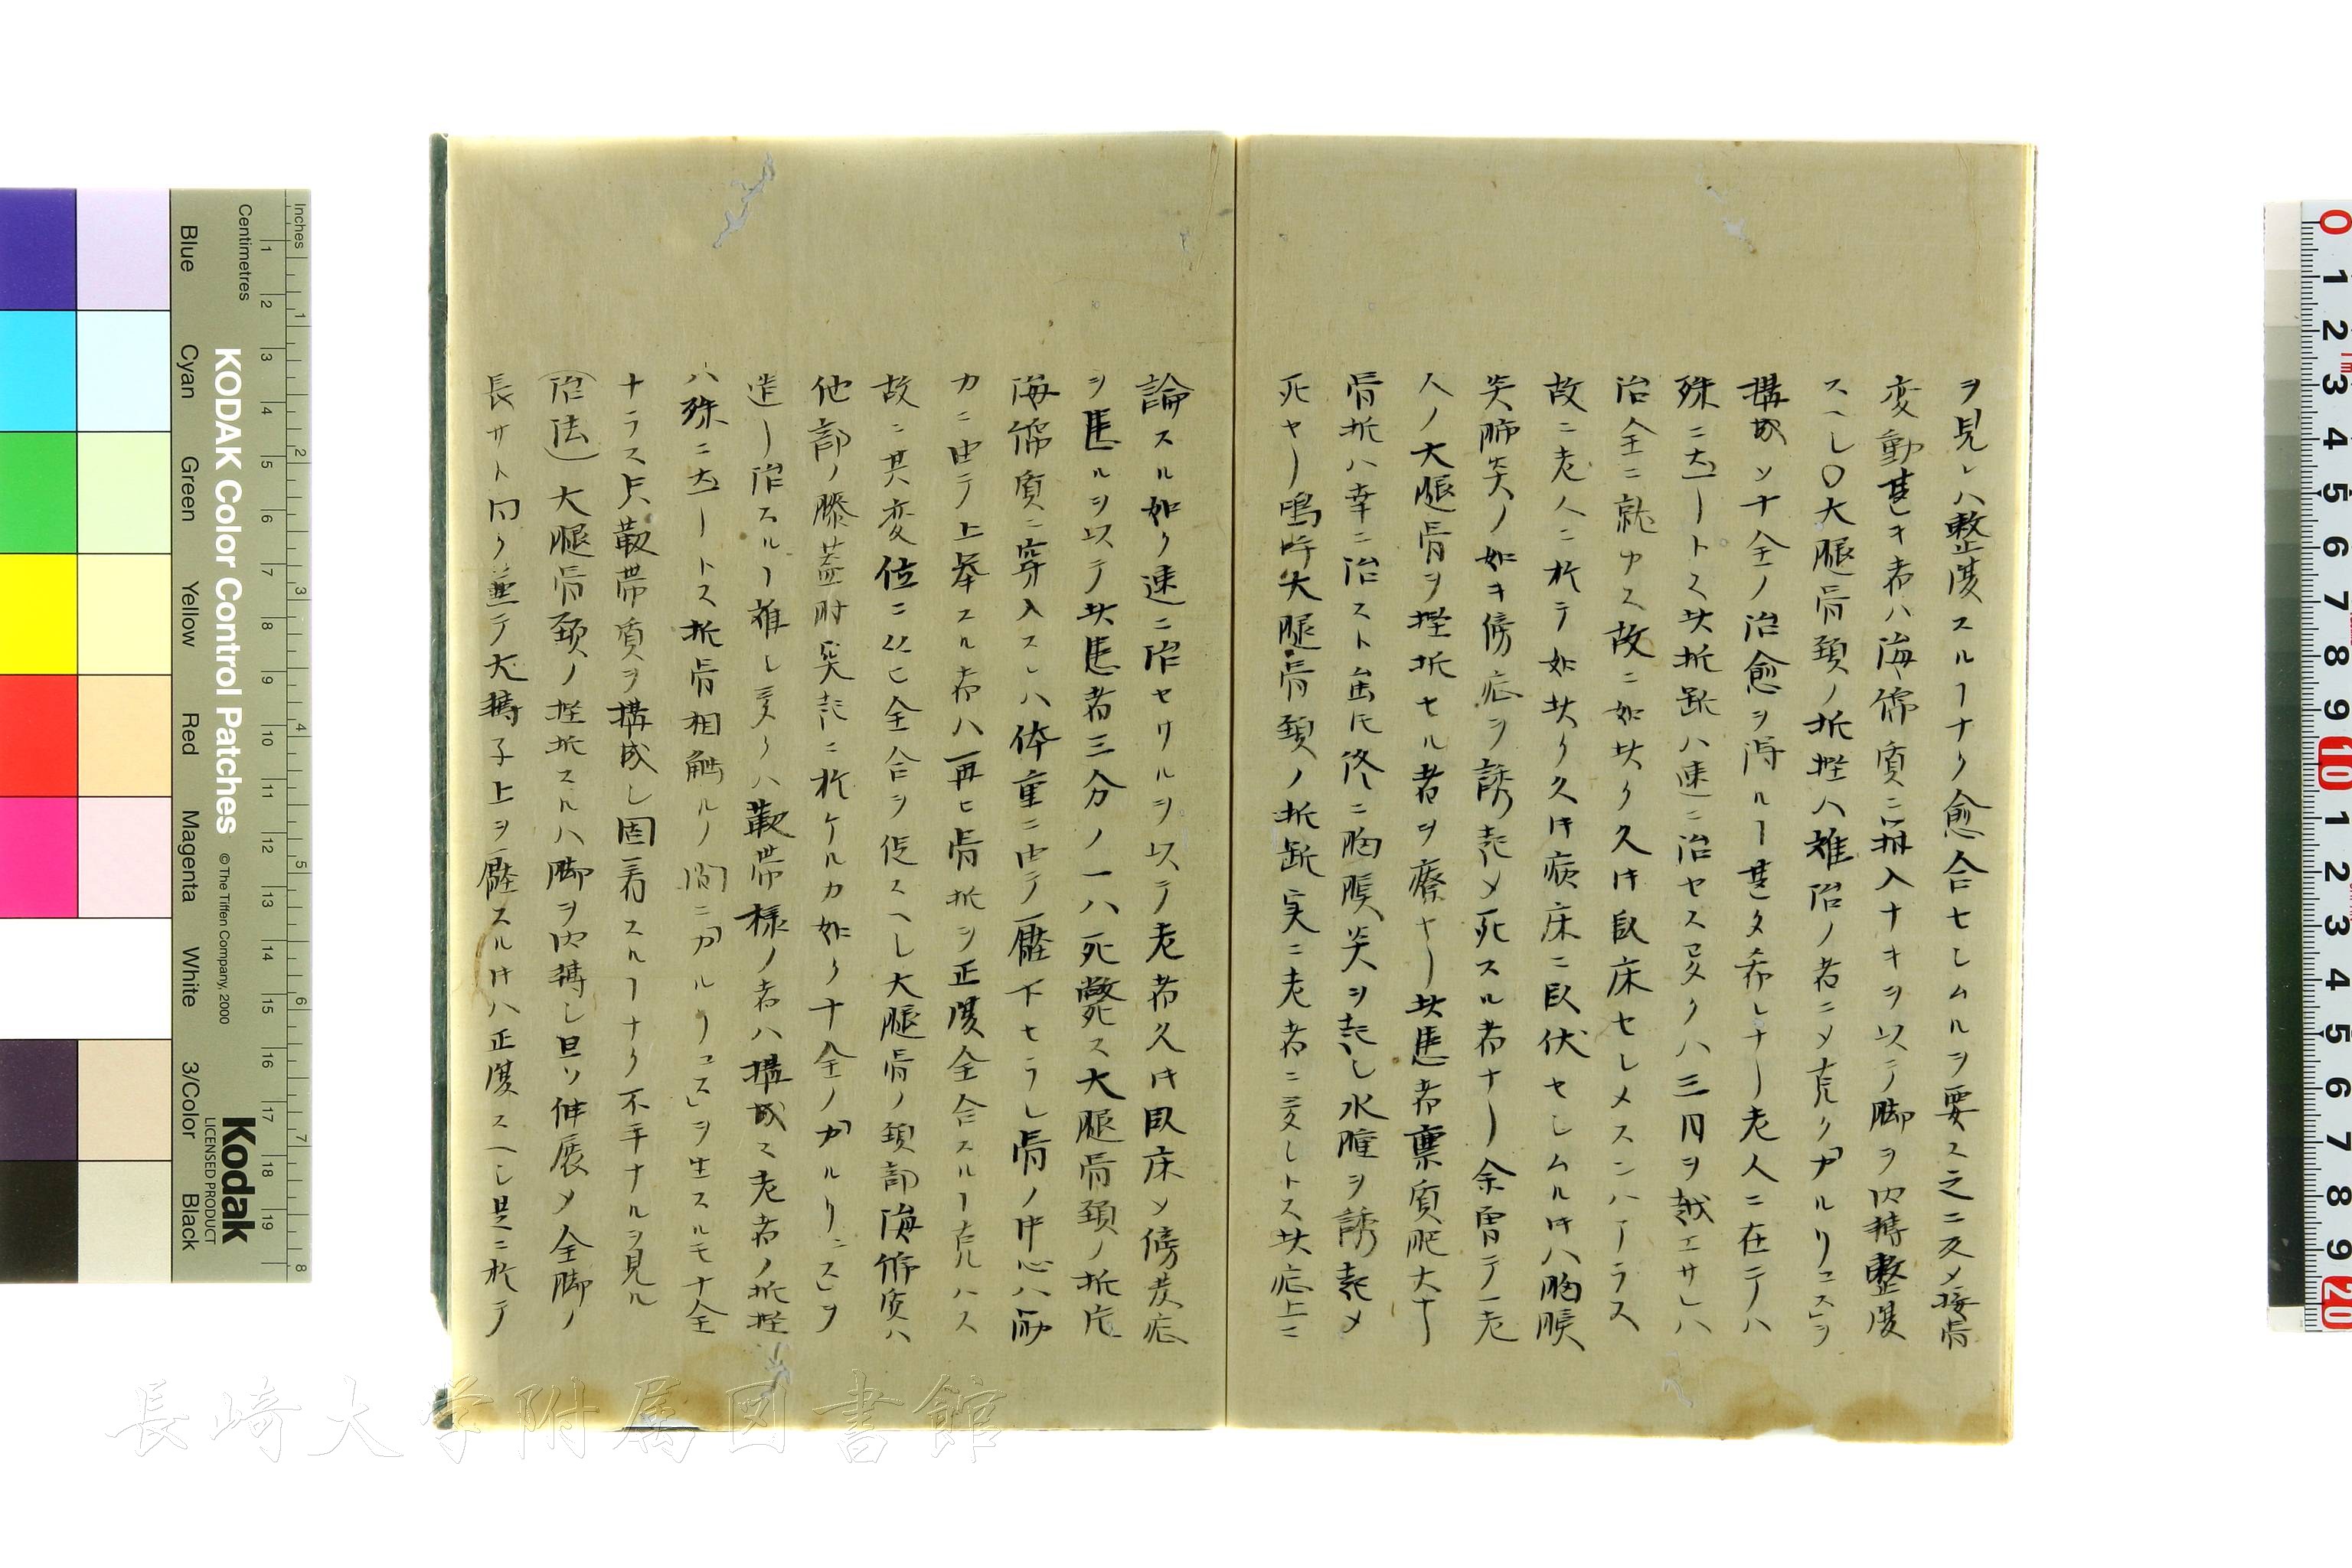 ヲ見レハ整復スルヿナク愈合セシムルヲ要ス之ニ反メ接骨
変動甚キ者ハ海綿質ニ挿入ナキヲ以テ脚ヲ内轉整復
スヘし〇大腿骨頚ノ折挫ハ難治ノ者ニメ克クカルリュスヲ
構成ソ十全ノ治愈ヲ得ルヿ甚タ希レナリ老人ニ在テハ
殊ニ然リトス此折断ハ速ニ治セス又ハ三月ヲ越エサレハ
治全ニ就カス故ニ如此ク久ク臥床セシメスンハアラス
故ニ老人ニ於テ如此ク久ク病床ニ臥伏セシムル時ハ胸膜
炎肺炎ノ如キ傍症ヲ誘起メ死スル者ナリ余曽テ一老
人ノ大腿骨ヲ挫折セル者ヲ療セリ此患者稟質肥大ナリ
骨折ハ幸ニ治スト雖𪜈終ニ胸膜炎ヲ起し水腫ヲ誘起メ
死セリ嗚呼大腿骨頚ノ折断実ニ老者ニ憂しトス此症上ニ
論スル如ク速ニ治セサルヲ以テ老者久ク臥床ソ傍発症
ヲ患ルヲ以テ此患者三分ノ一ハ死斃ス大腿骨頚ノ折片
海綿質ニ穿入スレハ体重ニ由テ壓下セラレ骨ノ中心ハ筋
力ニ由テ上挙スル者ハ再ヒ骨折シ正復全合スルヿ克ハス
故ニ其変位ニ従ヒ全合ヲ促スヘし大腿骨ノ頚部海綿質ハ
他部ノ膝蓋肘突起ニ於ケルカ如ク十全ノカルリュスヲ
造リ治スルヿ難し多クハ靱帯様ノ者ハ構成ス老者ノ折挫
ハ殊ニ然リトス折骨相觸ルノ間ニカルリュスヲ生スルモ十全
ナラス只靱帯質ヲ構成し固着スルヿナク不平ナルヲ見ル
(治法)大腿骨頚ノ挫折スルハ脚ヲ内轉し且ツ伸展メ全脚ノ
長サト同ク並テ大轉子上ヲ壓スル時ハ正復スヘし是ニ於テ
Inches
Centimetres
KODAK Color Control Patches
© The Tiffen Company, 2000
Kodak
LICENSED PRODUCT
Blue
Cyan
Green
Yellow
Red
Magenta
White
3/Color
Black
長崎大学附属図書館